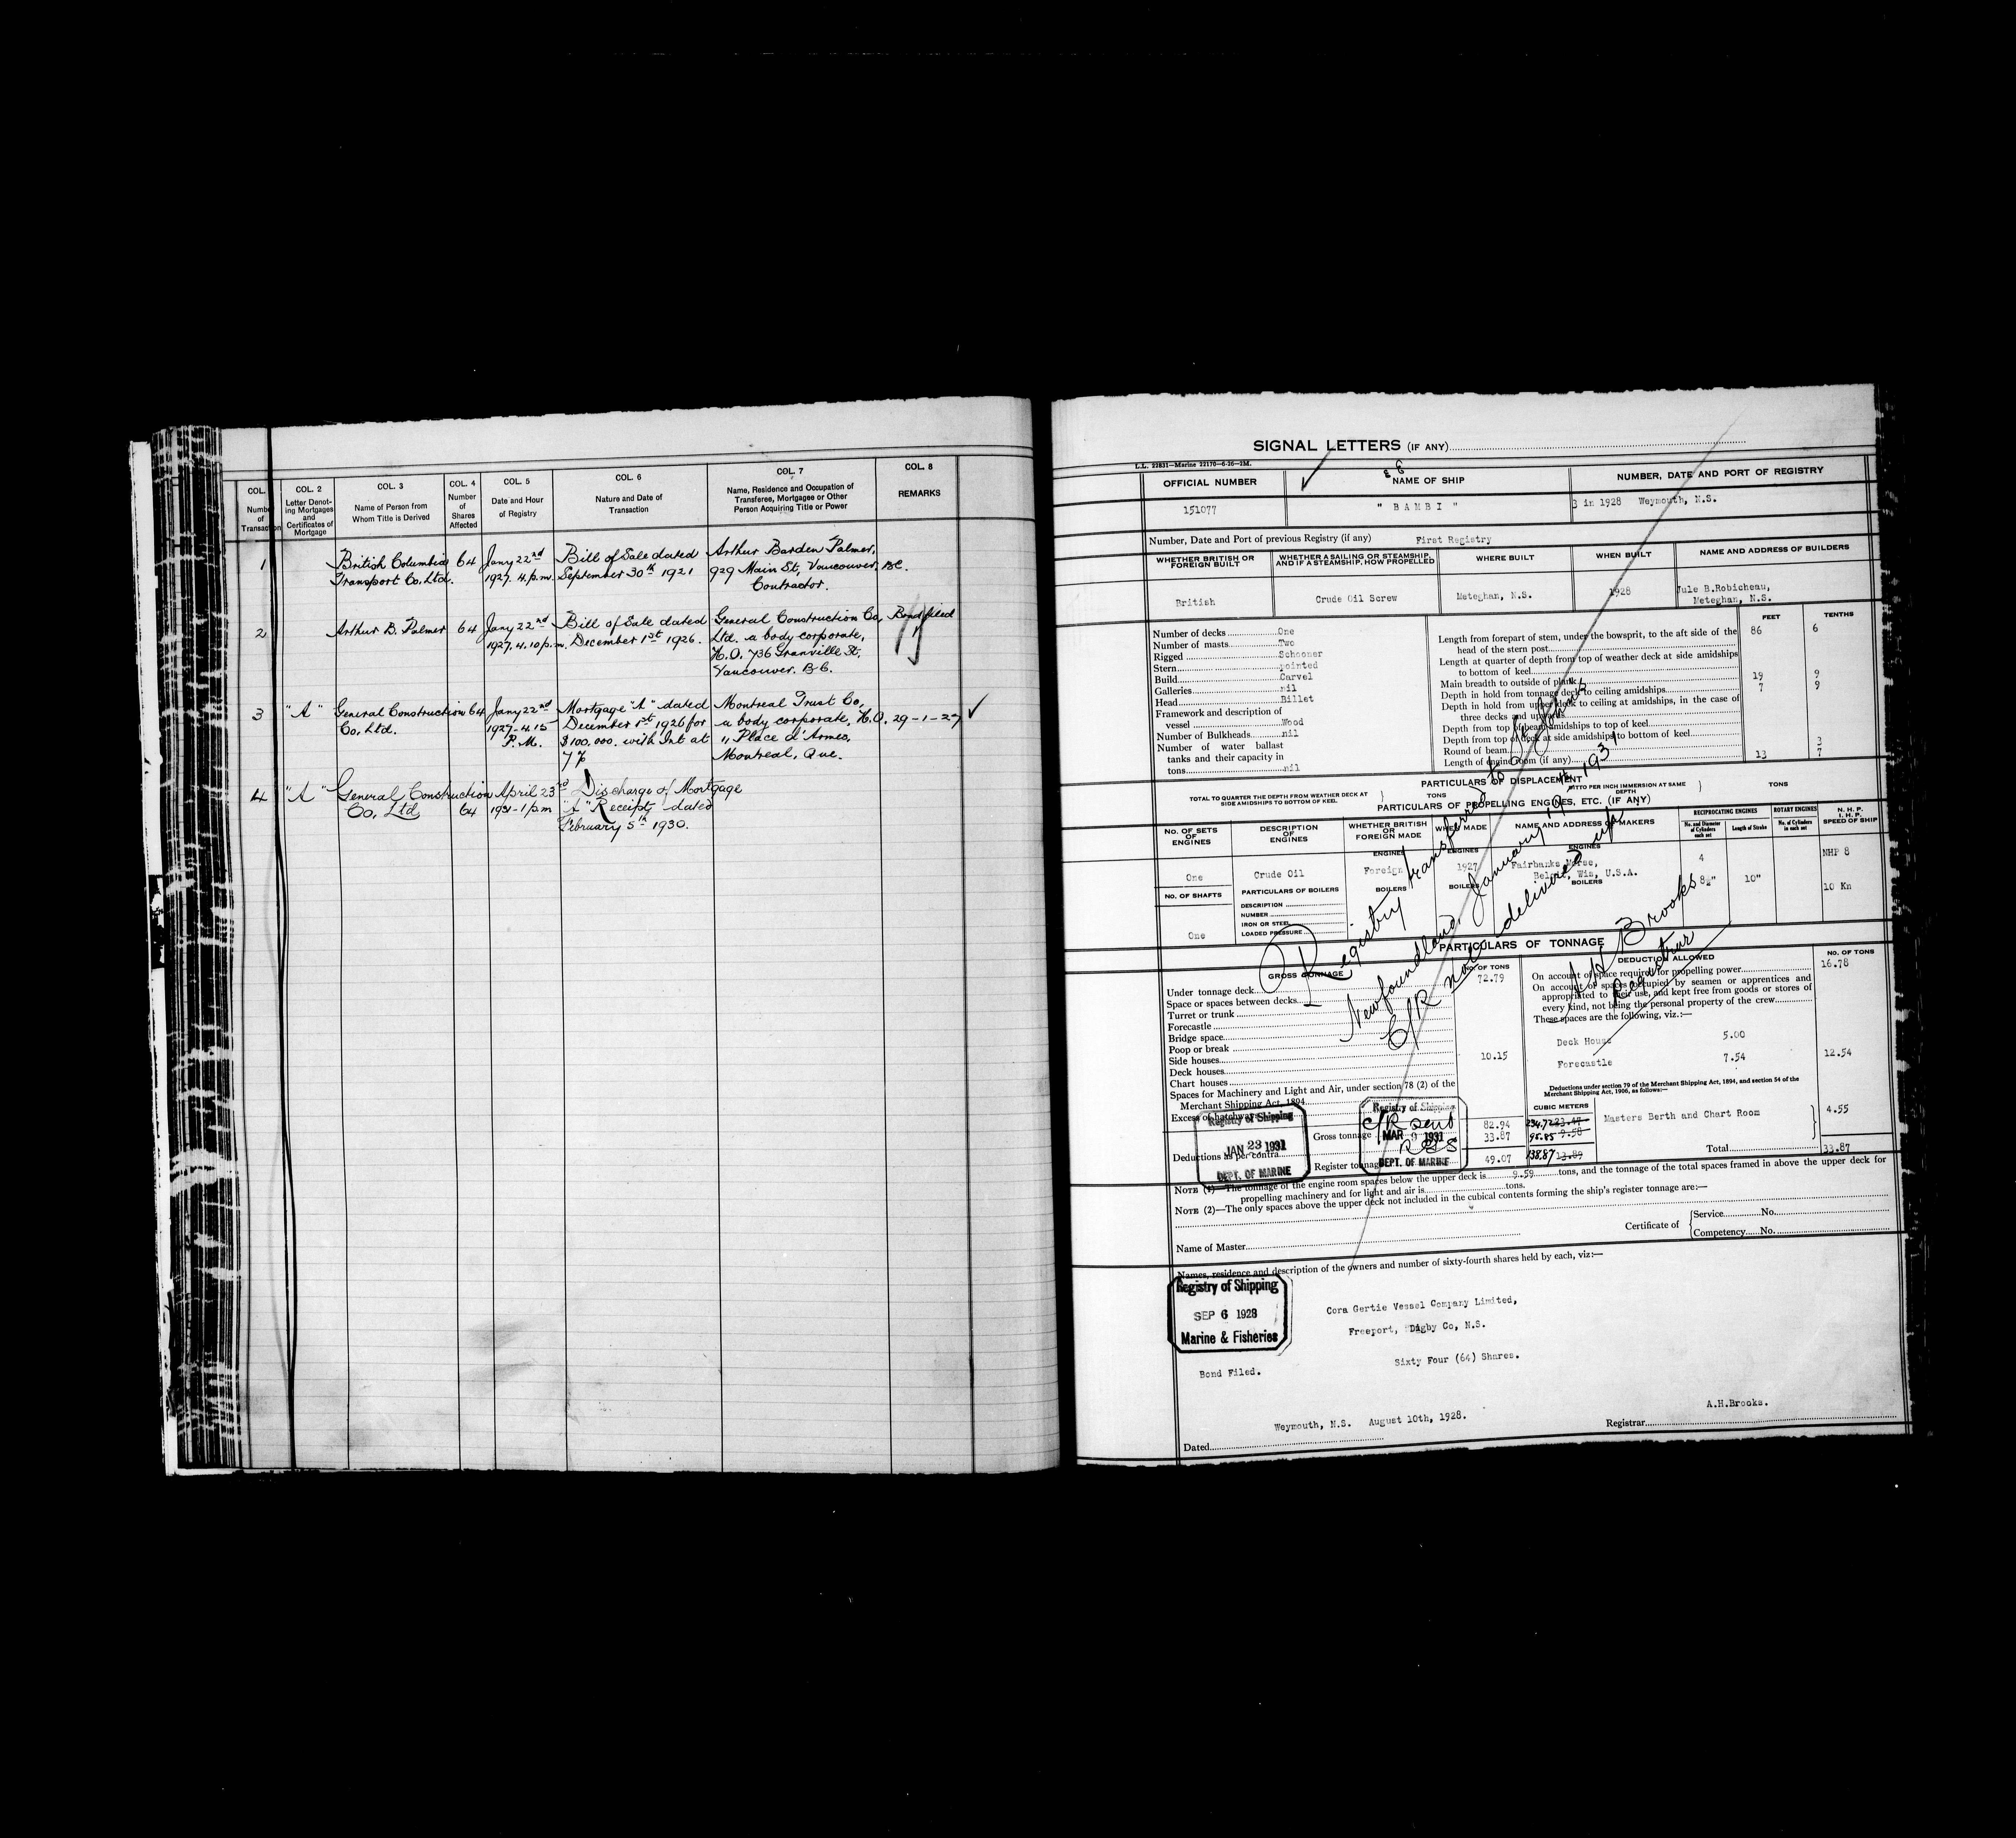 COL.
Numbe
of
Transaction
COL. 2
Letter Denot-
ing Mortgages
and
Certificates of
Mortgage
COL. 3
Name of Person from
Whom Title is Derived
COL. 4
Number
of
Shares
Affected
COL. 5
Date and Hour
of Registry
COL. 6
Nature and Date of
Transaction
COL. 7
Name, Residence and Occupation of
Transferee, Mortgagee or Other
Person Acquiring Title or Power
COL. 8
REMARKS
1 British Columbia 64 Jany 22nd Bill of Sale dated Arthur Barden Palmer,
Transport Co. Ltd. 1927. 4.p.m. September 30th 1921 929 Main St, Vancouver, BC.
Contractor.
2 Arthur B. Palmer 64 Jany 22nd Bill of Sale dated General Construction Co, Bond filed
1927. 4.10 p.m. December 1st 1926. Ltd. a body corporate,
H.O. 736 Granville St,
Vancouver. B.C.
3 "A" General Construction 64 Jany 22nd Mortgage "A" dated Montreal Trust Co,
Co, Ltd. 1927-4.15 December 1st 1926 for a body corporate, H.O, 29-1-27 ✓
P.M. $100,000. with Int at 11 Place d'Armes,
7% Montreal, Que.
4 "A" General Construction April 23rd Discharge of Mortgage
Co, Ltd 64 1931-1 p.m "A" Receipt dated
February 5th 1930.
SIGNAL LETTERS (IF ANY)
L.L. 22831—Marine 22170—6-26—2M.
OFFICIAL NUMBER
151077
NAME OF SHIP
" B A M B I "
NUMBER, DATE AND PORT OF REGISTRY
3 in 1928 Weymouth, N.S.
Number, Date and Port of previous Registry (if any) First Registry
WHETHER BRITISH OR
FOREIGN BUILT
British
WHETHER A SAILING OR STEAMSHIP,
AND IF A STEAMSHIP, HOW PROPELLED
Crude Oil Screw
WHERE BUILT
Meteghan, N.S.
WHEN BUILT
1928
NAME AND ADDRESS OF BUILDERS
Jule B.Robicheau,
Meteghan, N.S.
Number of decks One
Number of masts Two
Rigged Schooner
Stern pointed
Build Carvel
Galleries nil
Head Billet
Framework and description of
vessel Wood
Number of Bulkheads nil
Number of water ballast
tanks and their capacity in
tons nil
FEET TENTHS
Length from forepart of stem, under the bowsprit, to the aft side of the
head of the stern post 86 6
Length at quarter of depth from top of weather deck at side amidships
to bottom of keel
Main breadth to outside of plank 19 9
Depth in hold from tonnage deck to ceiling amidships 7 9
Depth in hold from upper deck to ceiling at amidships, in the case of
three decks and upwards
Depth from top of beam amidships to top of keel
Depth from top of deck at side amidships to bottom of keel
Round of beam 3
Length of engine room (if any) 13 7
PARTICULARS OF DISPLACEMENT
TOTAL TO QUARTER THE DEPTH FROM WEATHER DECK AT
SIDE AMIDSHIPS TO BOTTOM OF KEEL
TONS
DITTO PER INCH IMMERSION AT SAME
DEPTH
TONS
PARTICULARS OF PROPELLING ENGINES, ETC. (IF ANY)
NO. OF SETS
OF
ENGINES
One
NO. OF SHAFTS
One
DESCRIPTION
OF
ENGINES
Crude Oil
PARTICULARS OF BOILERS
DESCRIPTION
NUMBER
IRON OR STEEL
LOADED PRESSURE
WHETHER BRITISH
OR
FOREIGN MADE
ENGINES
Foreign
BOILERS
WHEN MADE
ENGINES
1927
BOILERS
NAME AND ADDRESS OF MAKERS
ENGINES
Fairbanks Morse,
Beloit, Wis, U.S.A.
BOILERS
RECIPROCATING ENGINES
No. and Diameter
of Cylinders
each set
4
8½"
Length of Stroke
10"
ROTARY ENGINES
No. of Cylinders
in each set
N. H. P.
I. H. P.
SPEED OF SHIP
NHP 8
10 Kn
Registry transferred to St. Johns
Newfoundland, January 19th 1931
C/R not delivered up
A H Brooks
Registrar
PARTICULARS OF TONNAGE
GROSS TONNAGE NO. OF TONS
Under tonnage deck 72.79
Space or spaces between decks
Turret or trunk
Forecastle
Bridge space
Poop or break
Side houses
Deck houses 10.15
Chart houses
Spaces for Machinery and Light and Air, under section 78 (2) of the
Merchant Shipping Act, 1894
Excess of hatchways
Gross tonnage 82.94
Deductions as per contra 33.87
Register tonnage 49.07
CUBIC METERS
234.72 23.47
95.85 9.58
138.87 13.89
DEDUCTION ALLOWED NO. OF TONS
On account of space required for propelling power 16.78
On account of spaces occupied by seamen or apprentices and
appropriated to their use, and kept free from goods or stores of
every kind, not being the personal property of the crew
These spaces are the following, viz.:—
Deck House 5.00
Forecastle 7.54 12.54
Deductions under section 79 of the Merchant Shipping Act, 1894, and section 54 of the
Merchant Shipping Act, 1906, as follows:—
Masters Berth and Chart Room 4.55
Total 33.87
Registry of Shipping
JAN 23 1931
DEPT. OF MARINE
Registry of Shipping
C/R sent
MAR 1931
DEPT. OF MARINE
NOTE (1)—The tonnage of the engine room spaces below the upper deck is 9.59 tons, and the tonnage of the total spaces framed in above the upper deck for
propelling machinery and for light and air is tons.
NOTE (2)—The only spaces above the upper deck not included in the cubical contents forming the ship's register tonnage are:—
Name of Master
Certificate of
Service No.
Competency No.
Names, residence and description of the owners and number of sixty-fourth shares held by each, viz:—
Registry of Shipping
SEP 6 1928
Marine & Fisheries
Cora Gertie Vessel Company Limited,
Freeport, Digby Co, N.S.
Sixty Four (64) Shares.
Bond Filed.
Weymouth, N.S. August 10th, 1928.
Dated
A.H.Brooks.
Registrar